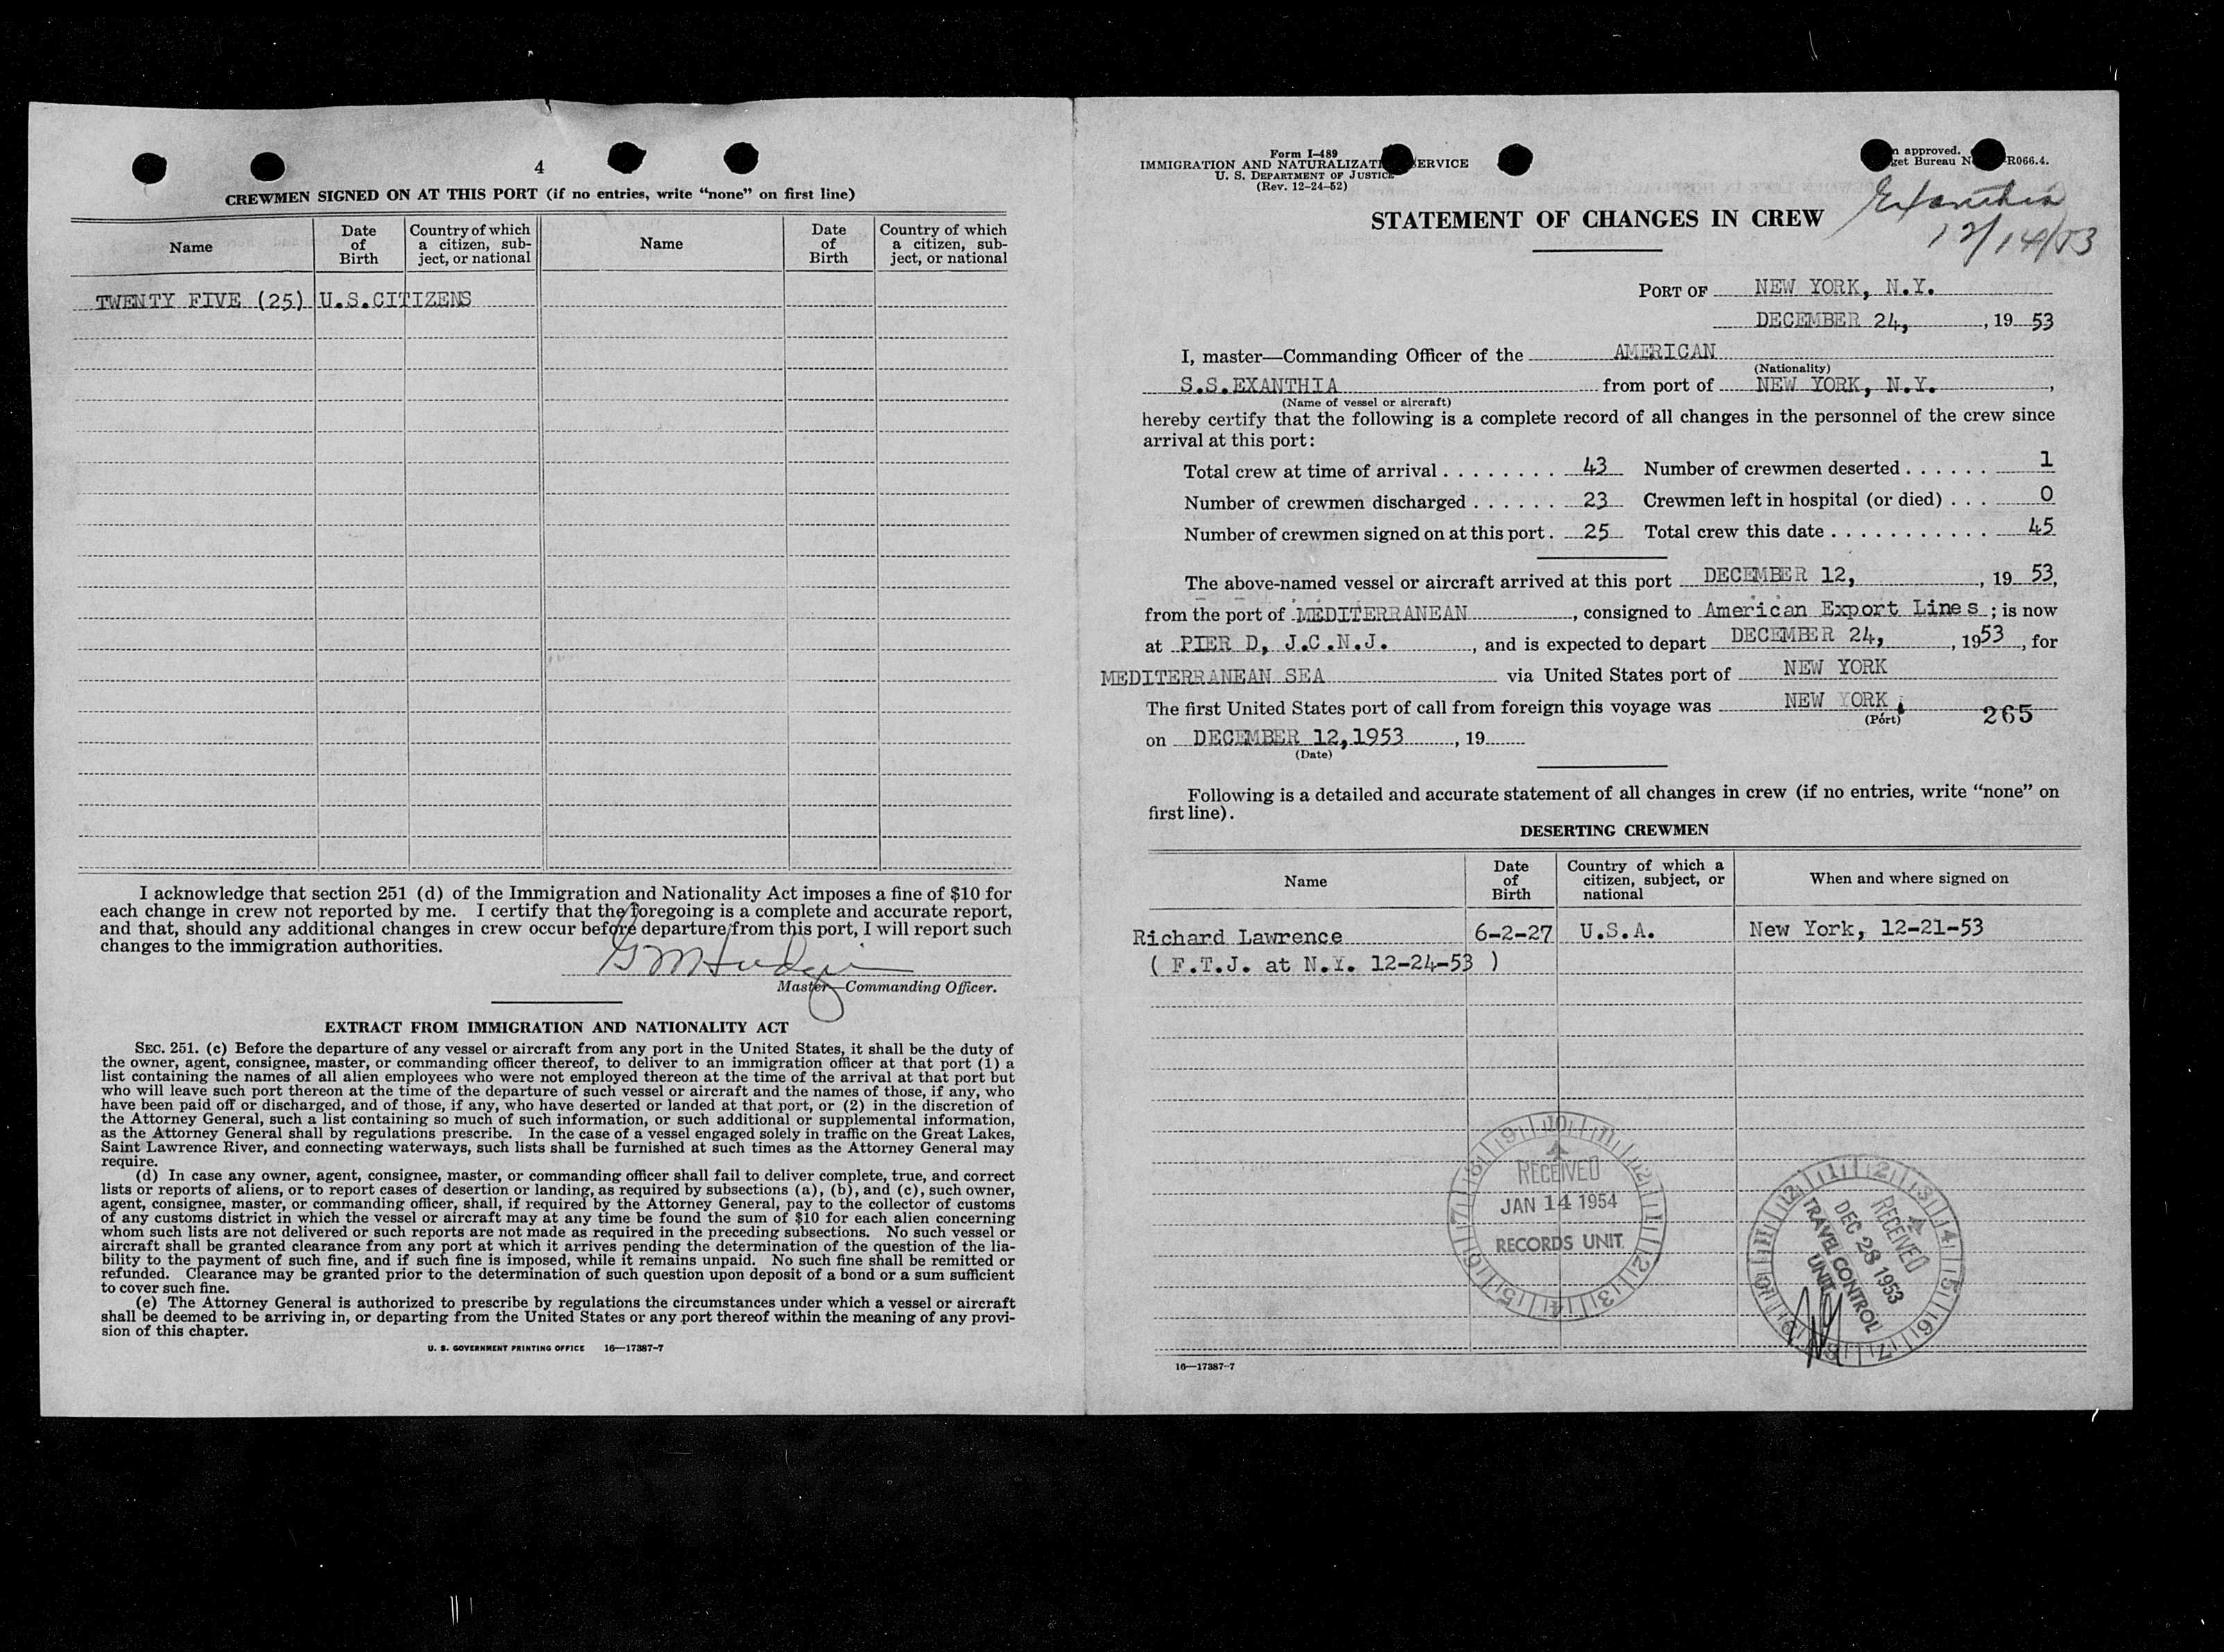 4
CREWMEN SIGNED ON AT THIS PORT (if no entries, write “none” on first line)
Name
Date of Birth
Country of which a citizen, subject, or national
Name
Date of Birth
Country of which a citizen, subject, or national
TWENTY FIVE (25) U.S.CITIZENS
I acknowledge that section 251 (d) of the Immigration and Nationality Act imposes a fine of $10 for
each change in crew not reported by me. I certify that the foregoing is a complete and accurate report,
and that, should any additional changes in crew occur before departure from this port, I will report such
changes to the immigration authorities.
Master—Commanding Officer.
EXTRACT FROM IMMIGRATION AND NATIONALITY ACT
SEC. 251. (c) Before the departure of any vessel or aircraft from any port in the United States, it shall be the duty of
the owner, agent, consignee, master, or commanding officer thereof, to deliver to an immigration officer at that port (1) a
list containing the names of all alien employees who were not employed thereon at the time of the arrival at that port but
who will leave such port thereon at the time of the departure of such vessel or aircraft and the names of those, if any, who
have been paid off or discharged, and of those, if any, who have deserted or landed at that port, or (2) in the discretion of
the Attorney General, such a list containing so much of such information, or such additional or supplemental information,
as the Attorney General shall by regulations prescribe. In the case of a vessel engaged solely in traffic on the Great Lakes,
Saint Lawrence River, and connecting waterways, such lists shall be furnished at such times as the Attorney General may
require.
(d) In case any owner, agent, consignee, master, or commanding officer shall fail to deliver complete, true, and correct
lists or reports of aliens, or to report cases of desertion or landing, as required by subsections (a), (b), and (c), such owner,
agent, consignee, master, or commanding officer, shall, if required by the Attorney General, pay to the collector of customs
of any customs district in which the vessel or aircraft may at any time be found the sum of $10 for each alien concerning
whom such lists are not delivered or such reports are not made as required in the preceding subsections. No such vessel or
aircraft shall be granted clearance from any port at which it arrives pending the determination of the question of the lia-
bility to the payment of such fine, and if such fine is imposed, while it remains unpaid. No such fine shall be remitted or
refunded. Clearance may be granted prior to the determination of such question upon deposit of a bond or a sum sufficient
to cover such fine.
(e) The Attorney General is authorized to prescribe by regulations the circumstances under which a vessel or aircraft
shall be deemed to be arriving in, or departing from the United States or any port thereof within the meaning of any provi-
sion of this chapter.
U. S. GOVERNMENT PRINTING OFFICE 16—17387-7
Form I-489
IMMIGRATION AND NATURALIZATI ERVICE
U. S. DEPARTMENT OF JUSTICE
(Rev. 12-24-52)
n approved.
get Bureau N R066.4.
Exanthia
12/14/53
STATEMENT OF CHANGES IN CREW
PORT OF NEW YORK, N.Y.
DECEMBER 24, , 19 53
I, master—Commanding Officer of the AMERICAN
(Nationality)
S.S.EXANTHIA from port of NEW YORK, N.Y. ,
(Name of vessel or aircraft)
hereby certify that the following is a complete record of all changes in the personnel of the crew since
arrival at this port:
Total crew at time of arrival . . . . . . . . 43 Number of crewmen deserted . . . . . . 1
Number of crewmen discharged . . . . . . 23 Crewmen left in hospital (or died) . . . 0
Number of crewmen signed on at this port . 25 Total crew this date . . . . . . . . . . . 45
The above-named vessel or aircraft arrived at this port DECEMBER 12, , 19 53,
from the port of MEDITERRANEAN , consigned to American Export Lines ; is now
at PIER D, J.C.N.J. , and is expected to depart DECEMBER 24, , 1953 , for
MEDITERRANEAN SEA via United States port of NEW YORK
The first United States port of call from foreign this voyage was NEW YORK
(Port)
265
on DECEMBER 12,1953 , 19
(Date)
Following is a detailed and accurate statement of all changes in crew (if no entries, write “none” on
first line).
DESERTING CREWMEN
Name
Date of Birth
Country of which a citizen, subject, or national
When and where signed on
Richard Lawrence 6-2-27 U.S.A. New York, 12-21-53
( F.T.J. at N.Y. 12-24-53 )
RECEIVED
JAN 14 1954
RECORDS UNIT
RECEIVED
DEC 28 1953
TRAVEL CONTROL
UNIT
16—17387-7